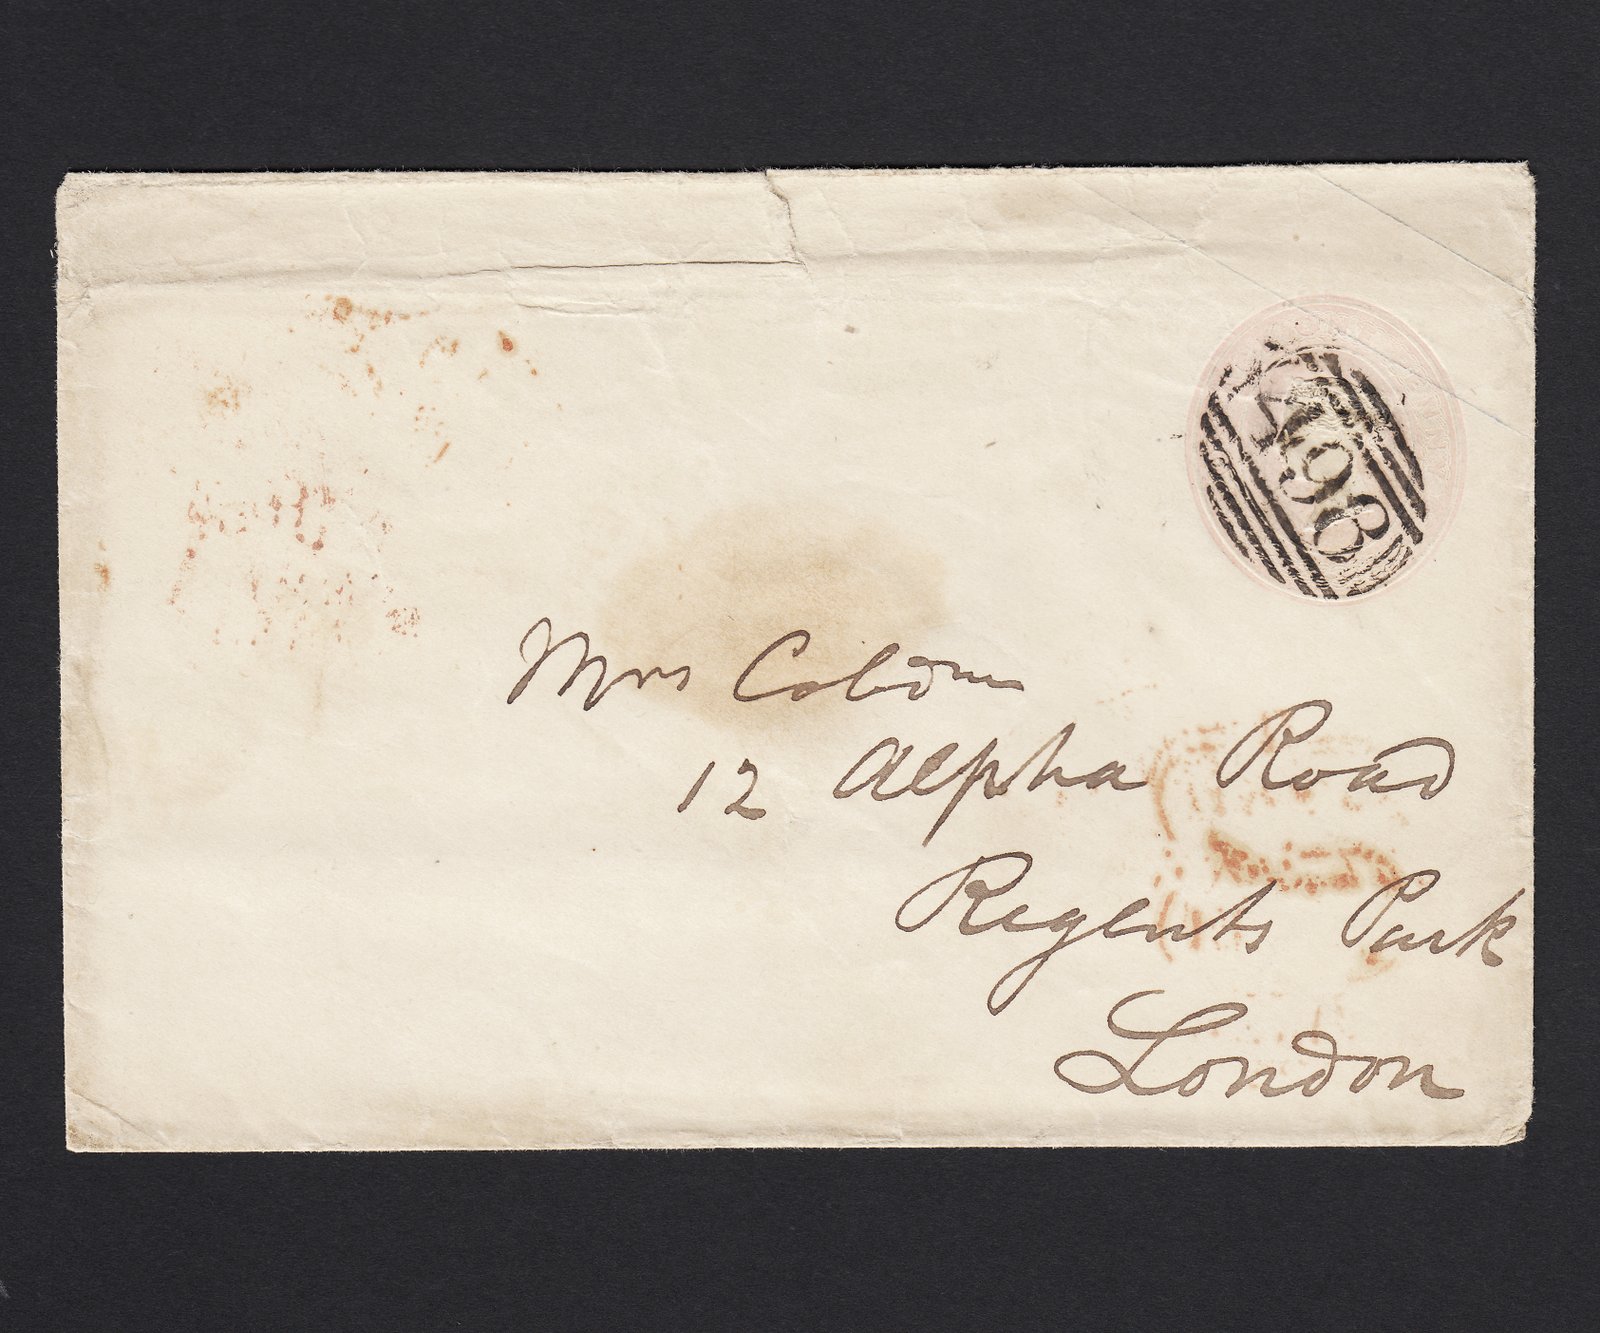 498
Mrs Cobden
12 Alpha Road
Regents Park
London